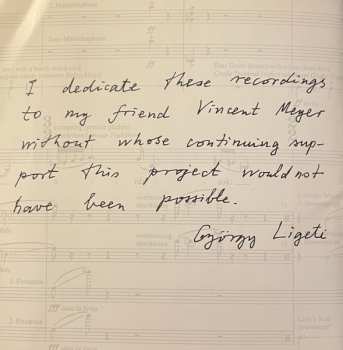 I dedicate these recordings
to my friend Vincent Meyer
without whose continuing sup-
port this project would not
have been possible.
György Ligeti